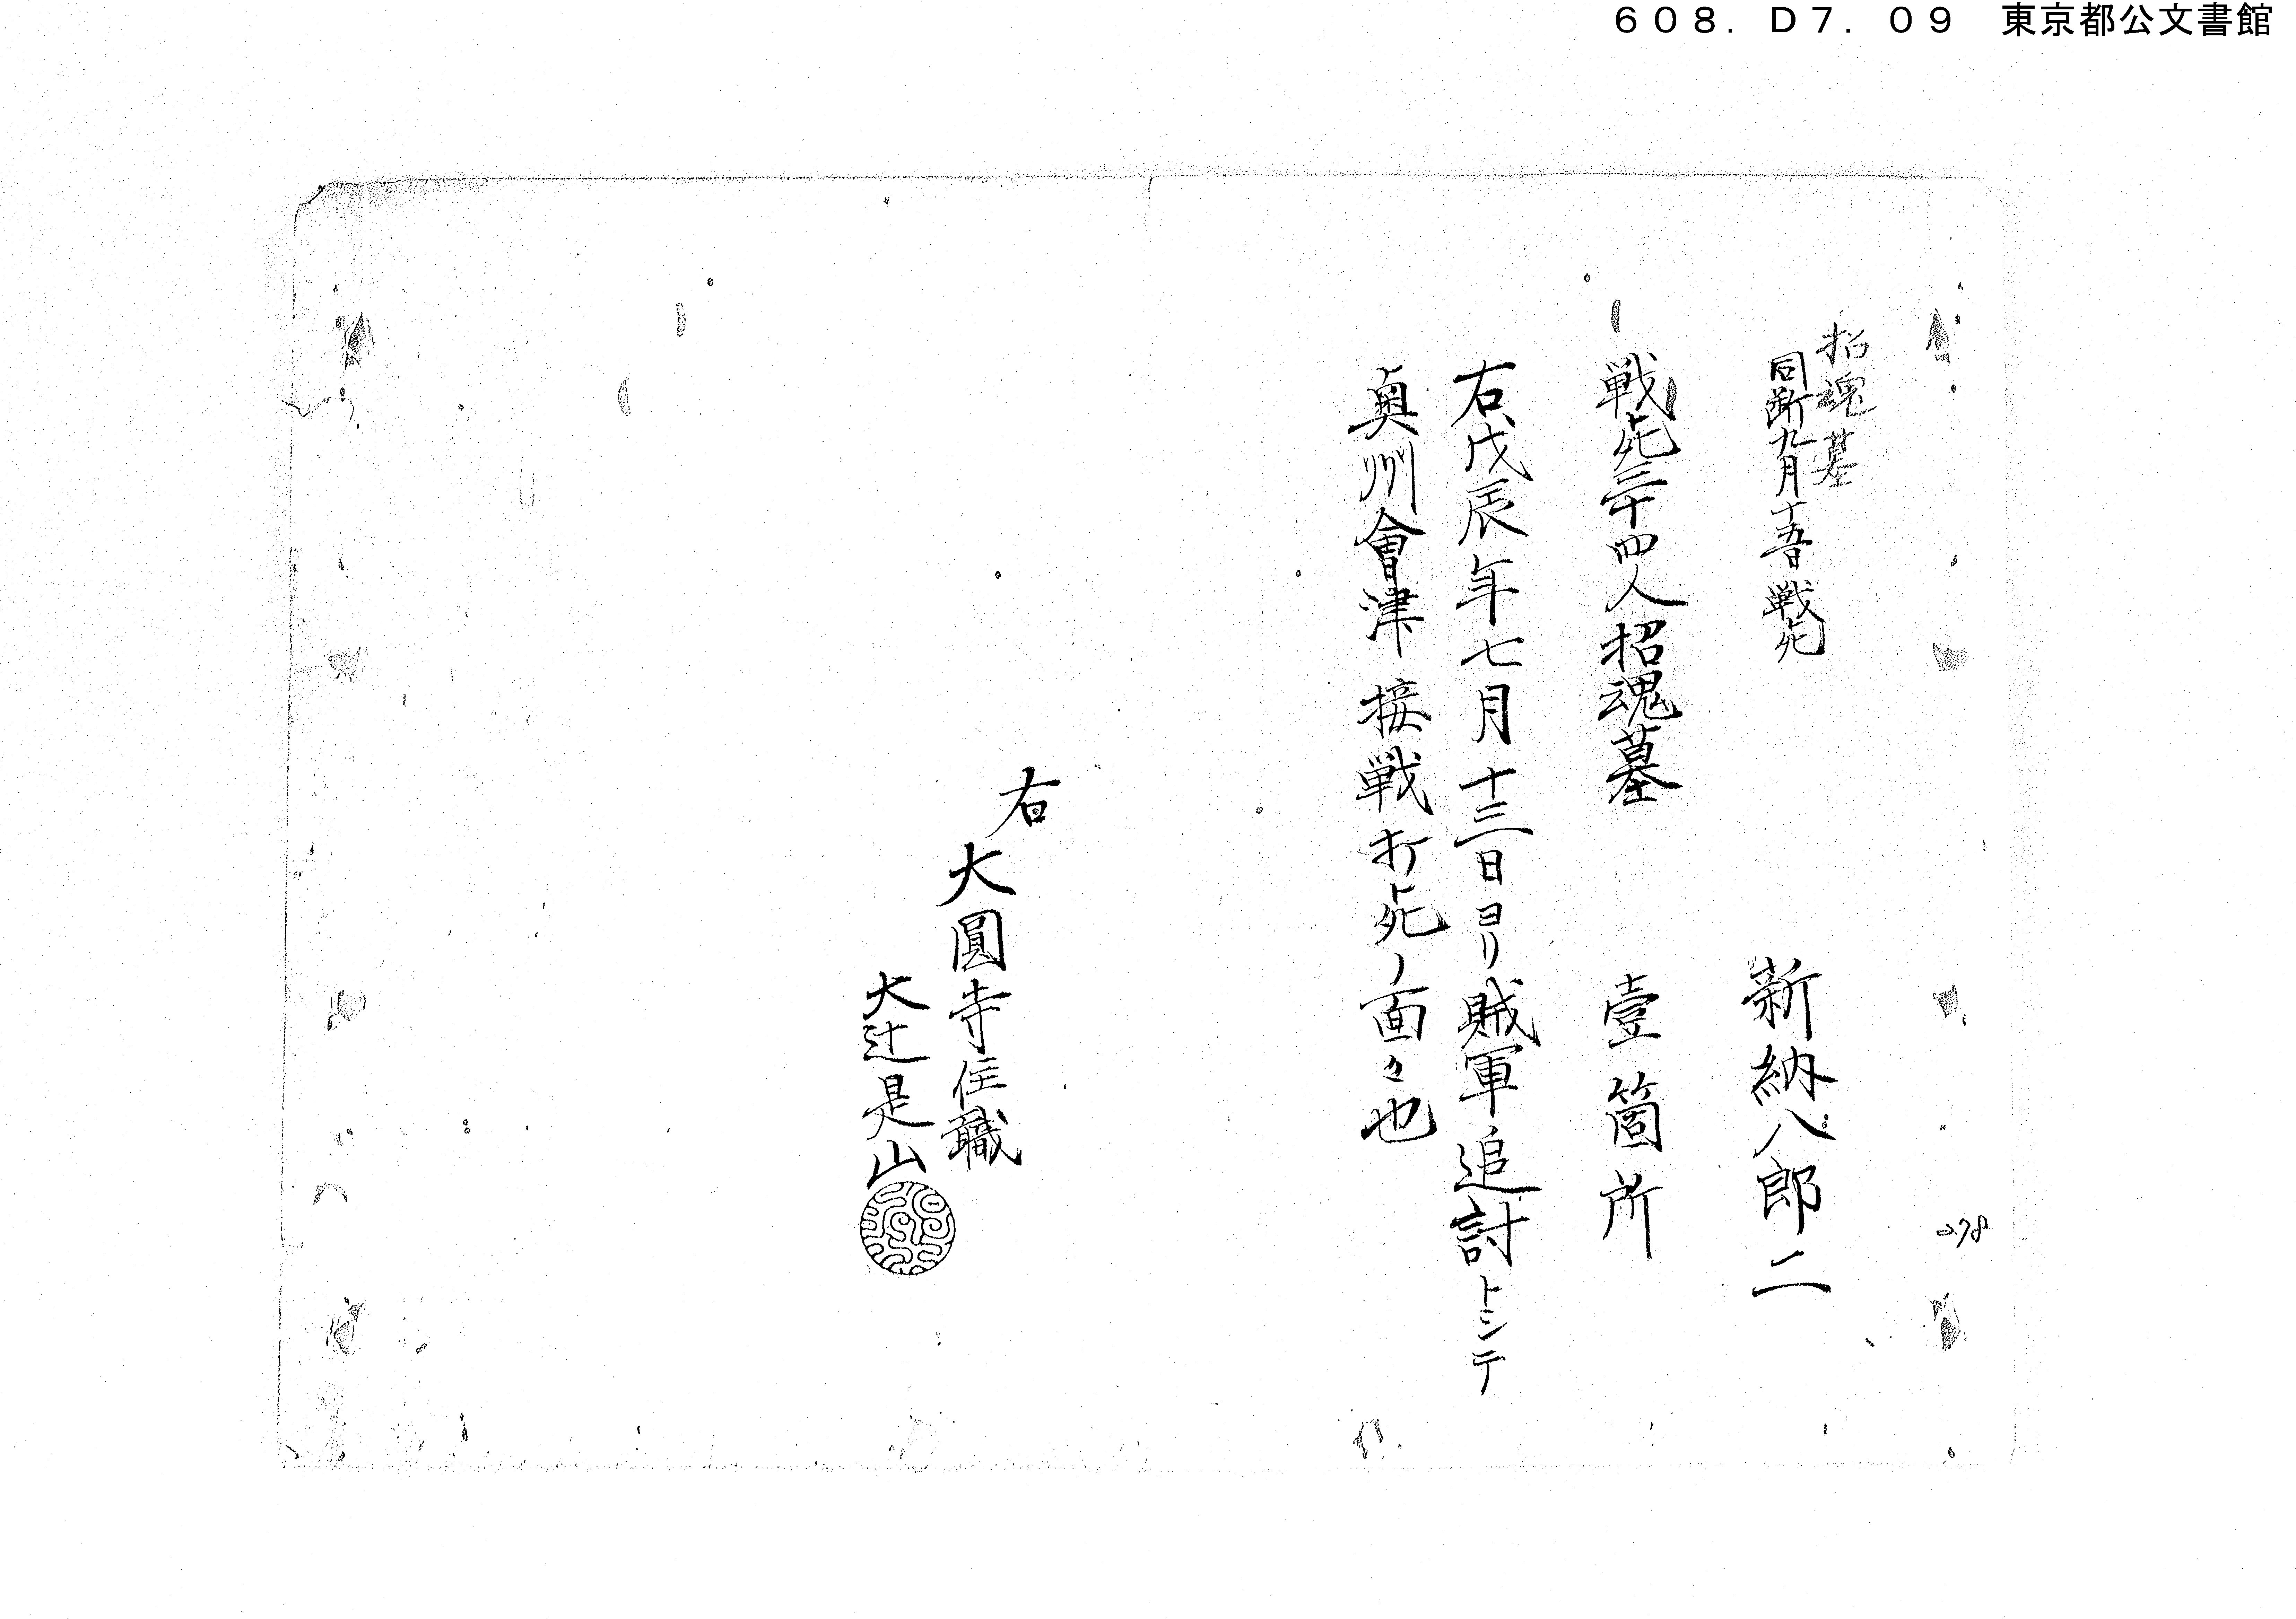 608.D7.09 東京都公文書館
招魂墓
同断九月十五日戦死
新納八郎二
一戦死三十四人招魂墓 壹箇所
右戊辰年七月十三日ヨリ賊軍追討トシテ
奥州會津接戦打死ノ面々也
右
大圓寺住職
大辻是山